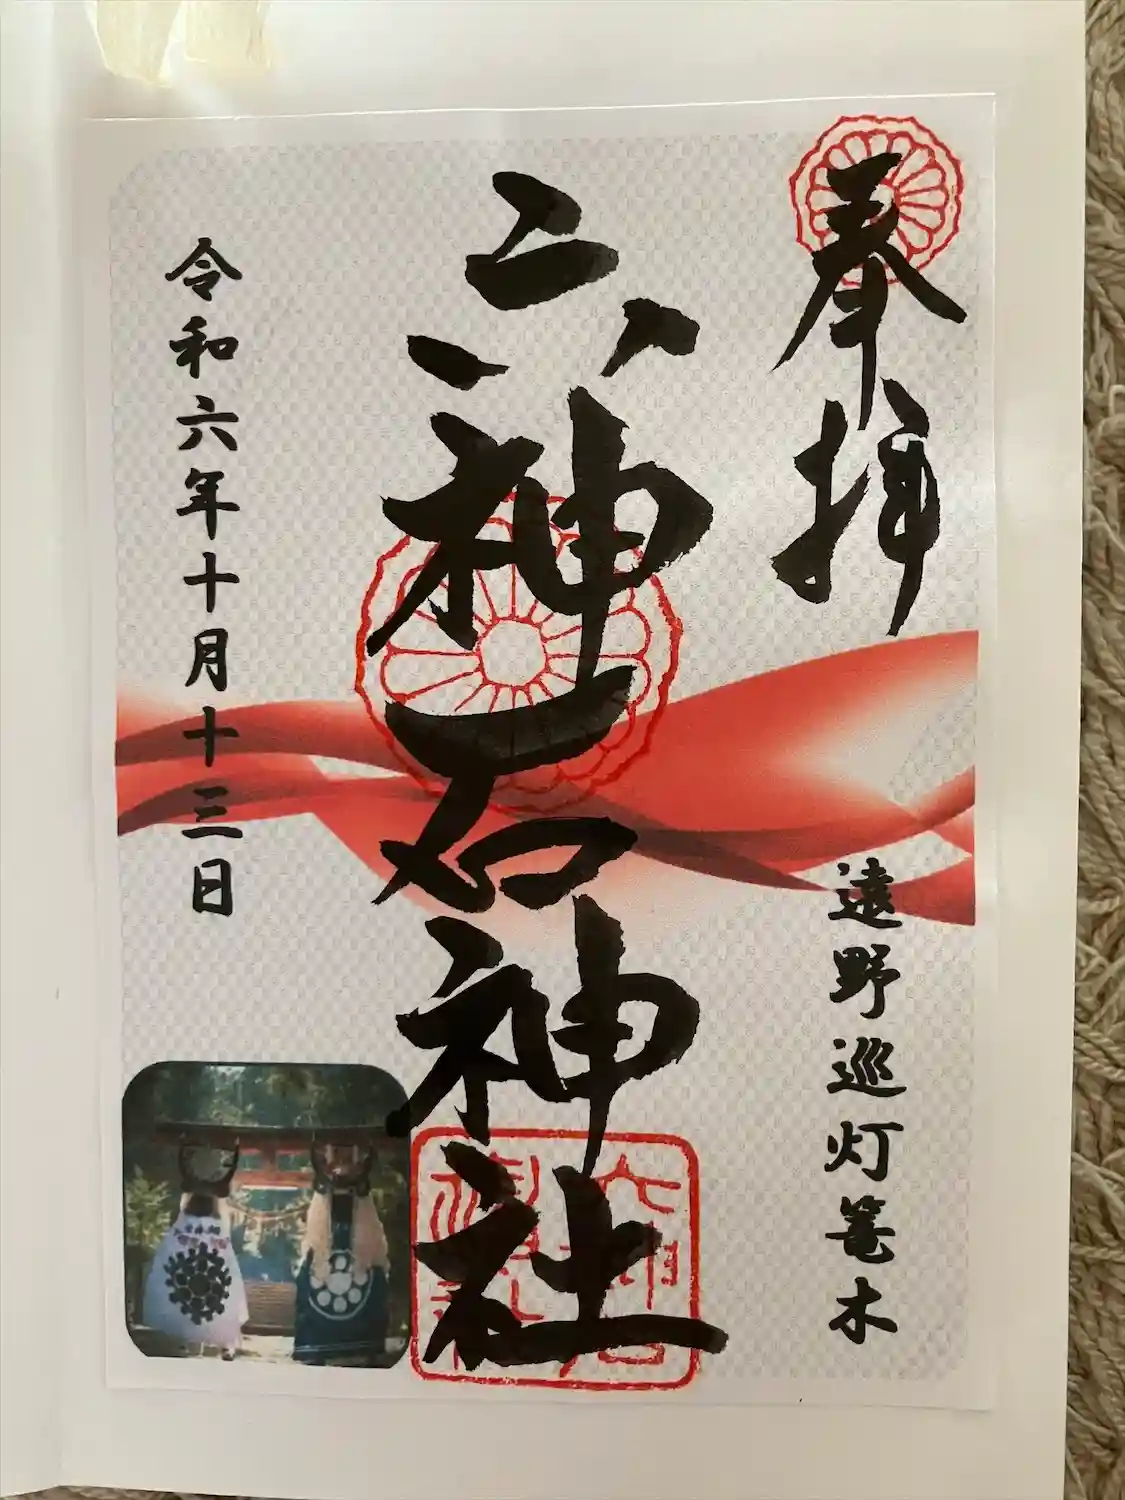 奉拝
遠野巡灯篭木
六神石神社
令和六年十月十三日